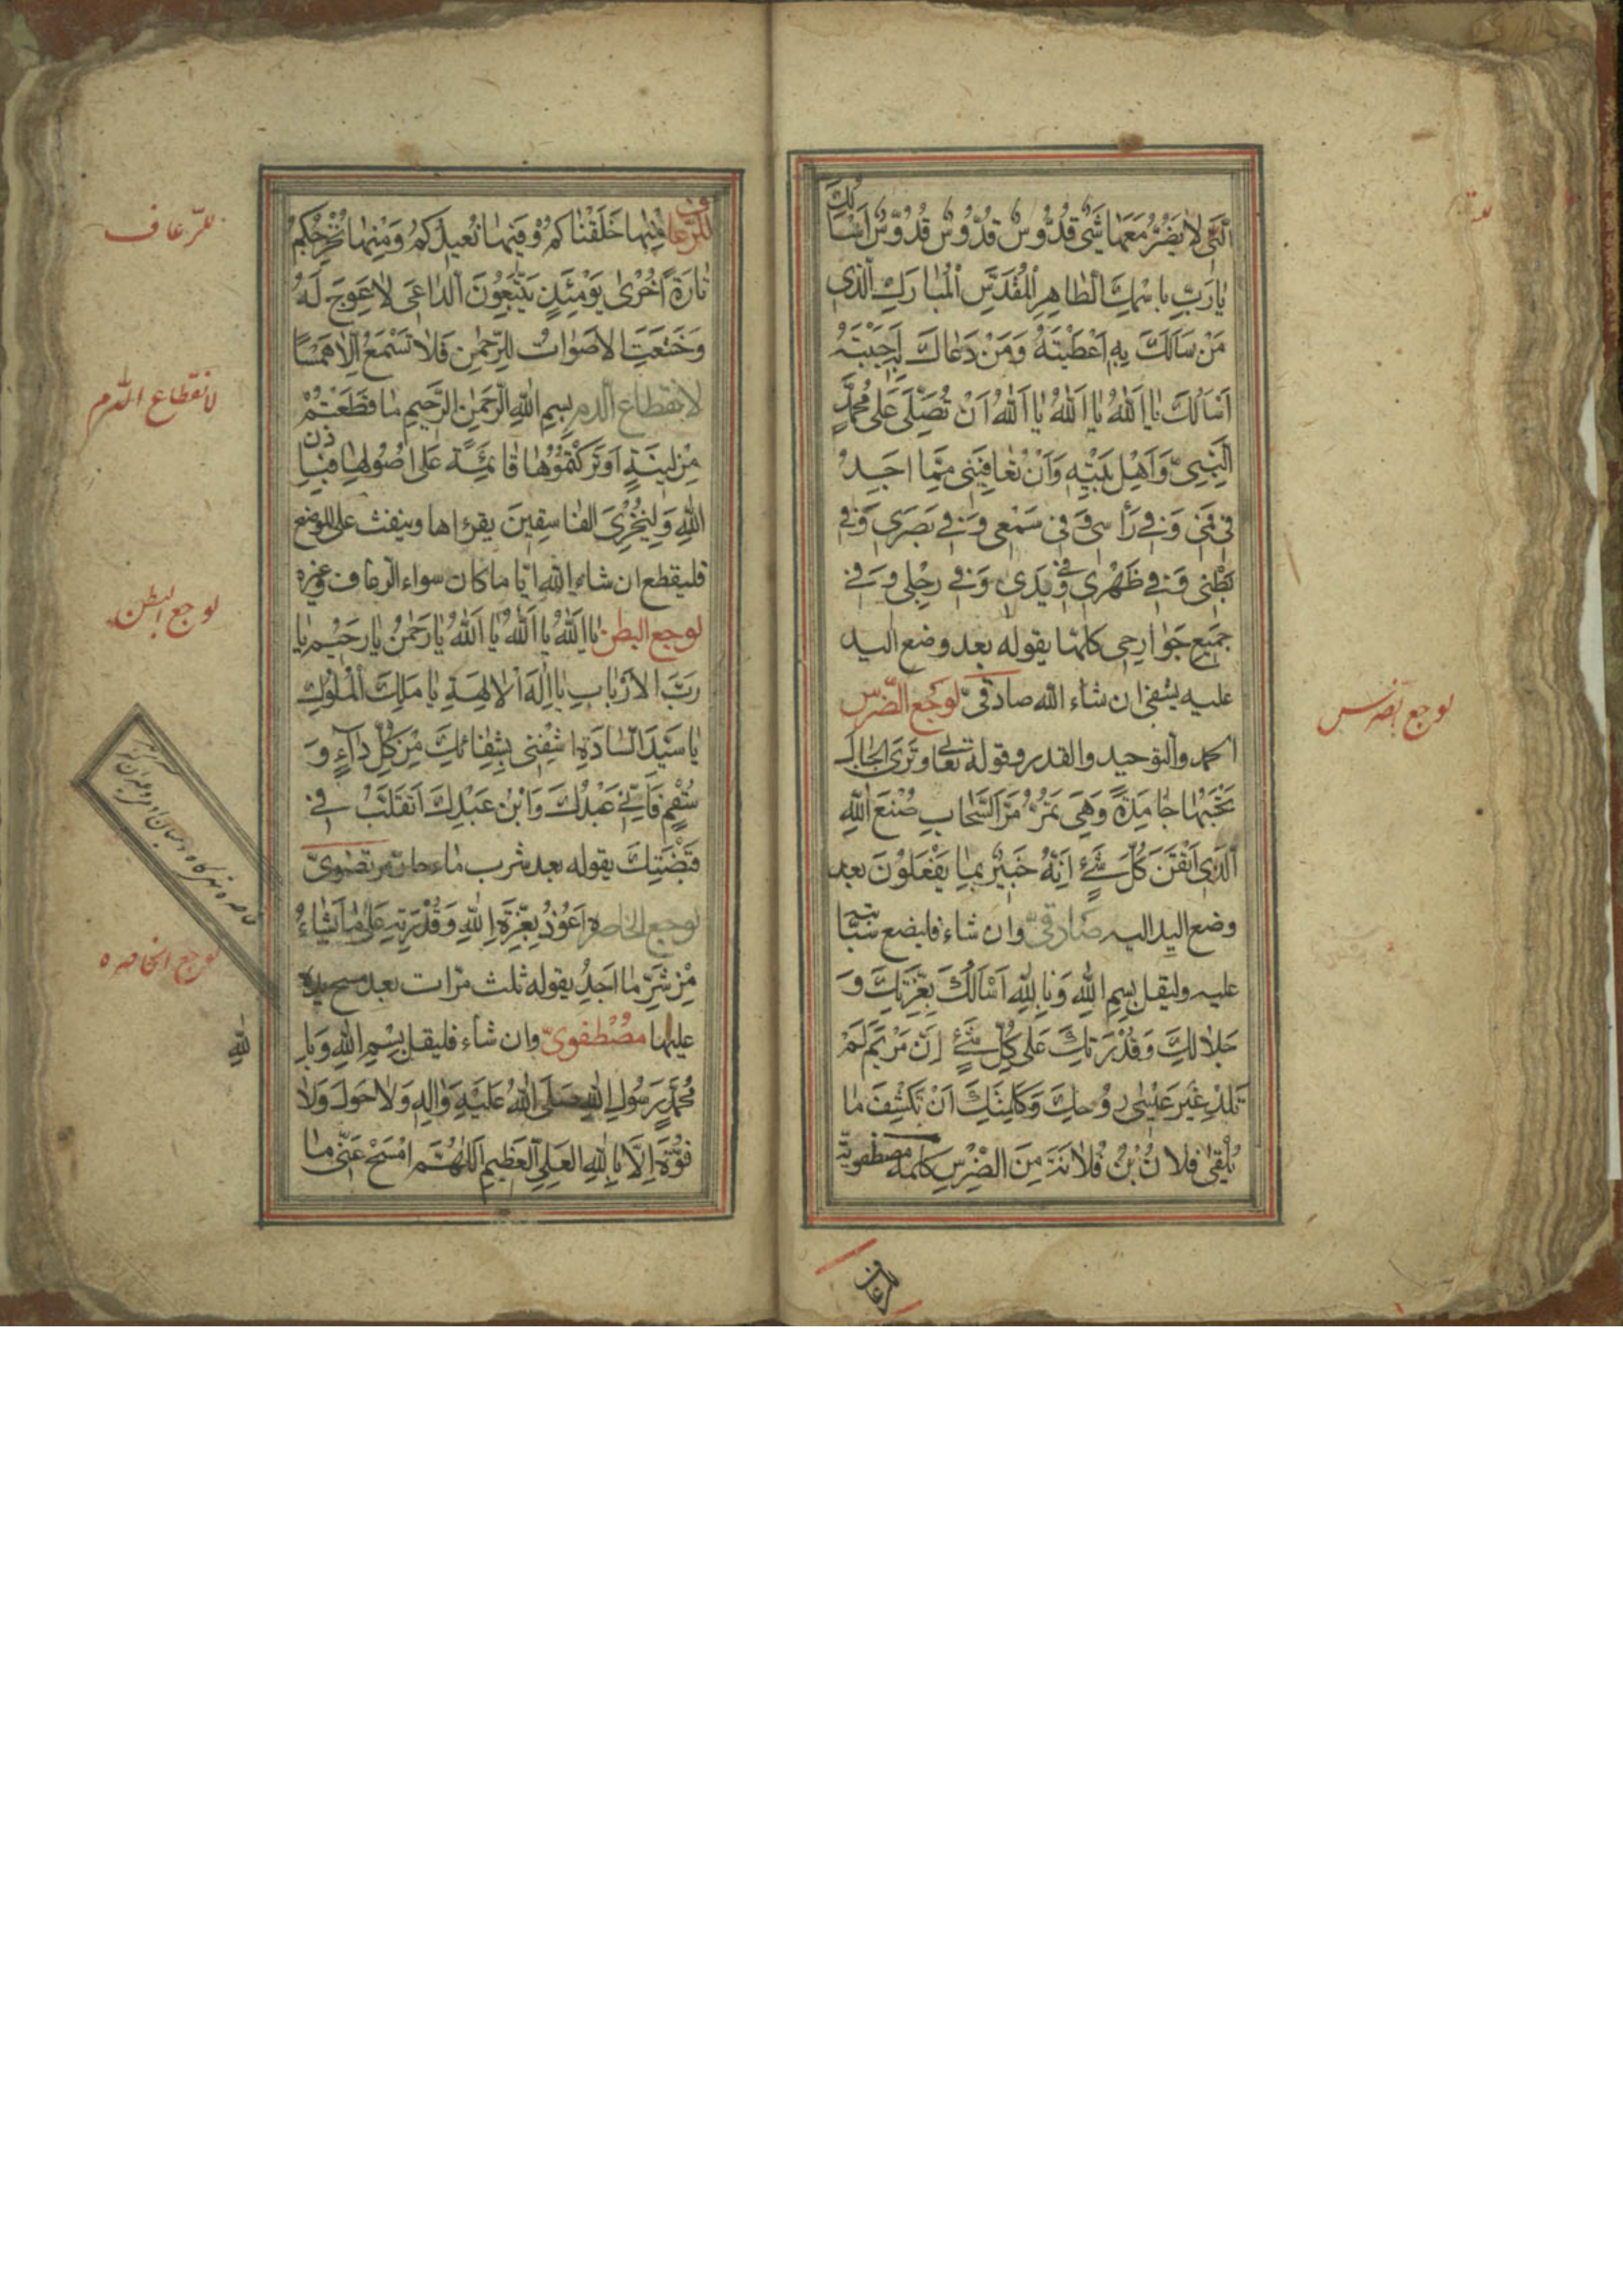 الَّتِي لَا يَضُرُّ مَعَهَا شَيْءٌ قُدُّوسٌ قُدُّوسٌ قُدُّوسٌ اَسْاَلُكَ
يَا رَبِّ بِاسْمِكَ الطَّاهِرِ الْمُقَدَّسِ الْمُبَارَكِ الَّذِي
مَنْ سَاَلَكَ بِهِ اَعْطَيْتَهُ وَمَنْ دَعَاكَ بِهِ اَجَبْتَهُ
اَسْاَلُكَ يَا اَللهُ يَا اَللهُ يَا اَللهُ اَنْ تُصَلِّيَ عَلَى مُحَمَّدٍ
النَّبِيِّ وَاَهْلِ بَيْتِهِ وَاَنْ تُعَافِيَنِي مِمَّا اَجِدُ
فِي فَمِي وَفِي رَأْسِي وَفِي سَمْعِي وَفِي بَصَرِي وَفِي
بَطْنِي وَفِي ظَهْرِي وَفِي يَدِي وَفِي رِجْلِي وَفِي
جَمِيعِ جَوَارِحِي كلّها يقوله بعد وضع اليد
عليه يشفى ان شاء الله صادقىّ لوجع الضّرس
لوجع الضرس
الحمد والتوحيد والقدر وقوله تعالى وَتَرَى الْجِبَالَ
تَحْسَبُهَا جَامِدَةً وَهِيَ تَمُرُّ مَرَّ السَّحَابِ صُنْعَ اللهِ
الَّذِي اَتْقَنَ كُلَّ شَيْءٍ اِنَّهُ خَبِيرٌ بِمَا يَفْعَلُونَ بعد
وضع اليد اليه صادقىّ وان شاء فليضع سبّابته
عليه وليقل بِسْمِ اللهِ وَبِاللهِ اَسْاَلُكَ بِعِزَّتِكَ وَ
جَلَالِكَ وَقُدْرَتِكَ عَلَى كُلِّ شَيْءٍ اِنَّ مَرْيَمَ لَمْ
تَلِدْ غَيْرَ عِيسَى رُوحِكَ وَكَلِمَتِكَ اَنْ تَكْشِفَ مَا
يَلْقَى فُلَانُ بْنُ فُلَانَةَ مِنَ الضِّرْسِ كُلِّهِ مصطفويّة
للرّعاف
للرّعاف مِنْهَا خَلَقْنَاكُمْ وَفِيهَا نُعِيدُكُمْ وَمِنْهَا نُخْرِجُكُمْ
تَارَةً اُخْرَى يَوْمَئِذٍ يَتَّبِعُونَ الدَّاعِيَ لَا عِوَجَ لَهُ
وَخَشَعَتِ الْاَصْوَاتُ لِلرَّحْمٰنِ فَلَا تَسْمَعُ اِلَّا هَمْسًا
لانقطاع الدّم
لانقطاع الدم بِسْمِ اللهِ الرَّحْمٰنِ الرَّحِيمِ مَا قَطَعْتُمْ
مِنْ لِينَةٍ اَوْ تَرَكْتُمُوهَا قَائِمَةً عَلَى اُصُولِهَا فَبِاِذْنِ
اللهِ وَلِيُخْزِيَ الْفَاسِقِينَ يقراها وينفث على الموضع
فلينقطع ان شاء الله ايّا ما كان سواء الرعاف وغيره
لوجع البطن
لوجع البطن يَا اَللهُ يَا اَللهُ يَا اَللهُ يَا رَحْمٰنُ يَا رَحِيمُ يَا
رَبَّ الْاَرْبَابِ يَا اِلٰهَ الْاٰلِهَةِ يَا مَلِكَ الْمُلُوكِ
يَا سَيِّدَ السَّادَةِ اِشْفِنِي بِشِفَائِكَ مِنْ كُلِّ دَاءٍ وَ
سُقْمٍ فَاِنِّي عَبْدُكَ وَابْنُ عَبْدِكَ اَتَقَلَّبُ فِي
قَبْضَتِكَ يقوله بعد شرب ماء حارّ مرتضوىّ
لوجع الخاصره
لوجع الخاصره اَعُوذُ بِعِزَّةِ اللهِ وَقُدْرَتِهِ عَلَى مَا يَشَاءُ
مِنْ شَرِّ مَا اَجِدُ يقوله ثلث مرّات بعد مسح يده
عليها مصطفوىّ وان شاء فليقل بِسْمِ اللهِ وَبِا
للهِ
مُحَمَّدٍ رَسُولِ اللهِ صَلَّى اللهُ عَلَيْهِ وَاٰلِهِ وَلَا حَوْلَ وَلَا
قُوَّةَ اِلَّا بِاللهِ الْعَلِيِّ الْعَظِيمِ اَللّٰهُمَّ امْسَحْ عَنِّي مَا